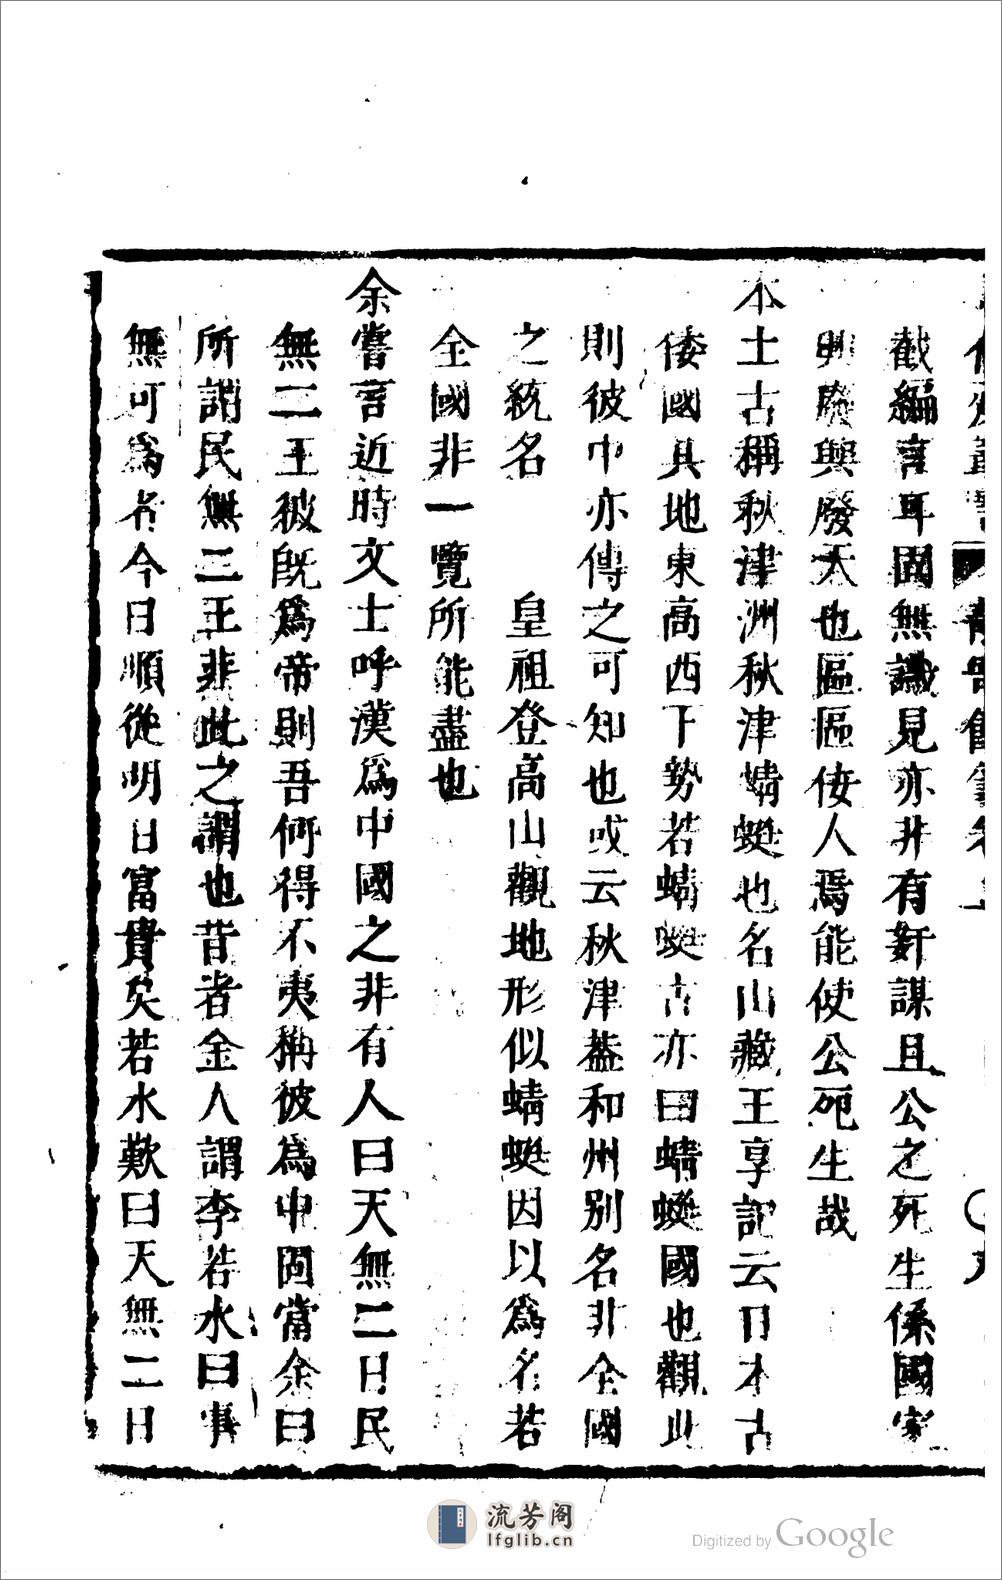 截編言耳固無識見亦非有奸謀且公之死生係國家
興廢興廢天也區區佞人焉能使公死生哉
本土古稱秋津洲秋津蜻蜓也名山藏王享記云日本古
倭國其地東高西下勢若蜻蜓古亦曰蜻蜓國也觀此
則彼中亦傳之可知也或云秋津葢和州別名非全國
之統名　　皇祖登高山觀地形似蜻蜓因以爲名若
全國非一覽所能盡也
余嘗言近時文士呼漢爲中國之非有人曰天無二日民
無二王彼旣爲帝則吾何得不夷稱彼爲中固當余曰
所謂民無二王非此之謂也昔者金人謂李若水曰事
無可爲者今日順從明日富貴矣若水歎曰天無二日
流芳阁
lfglib.cn
Digitized by Google